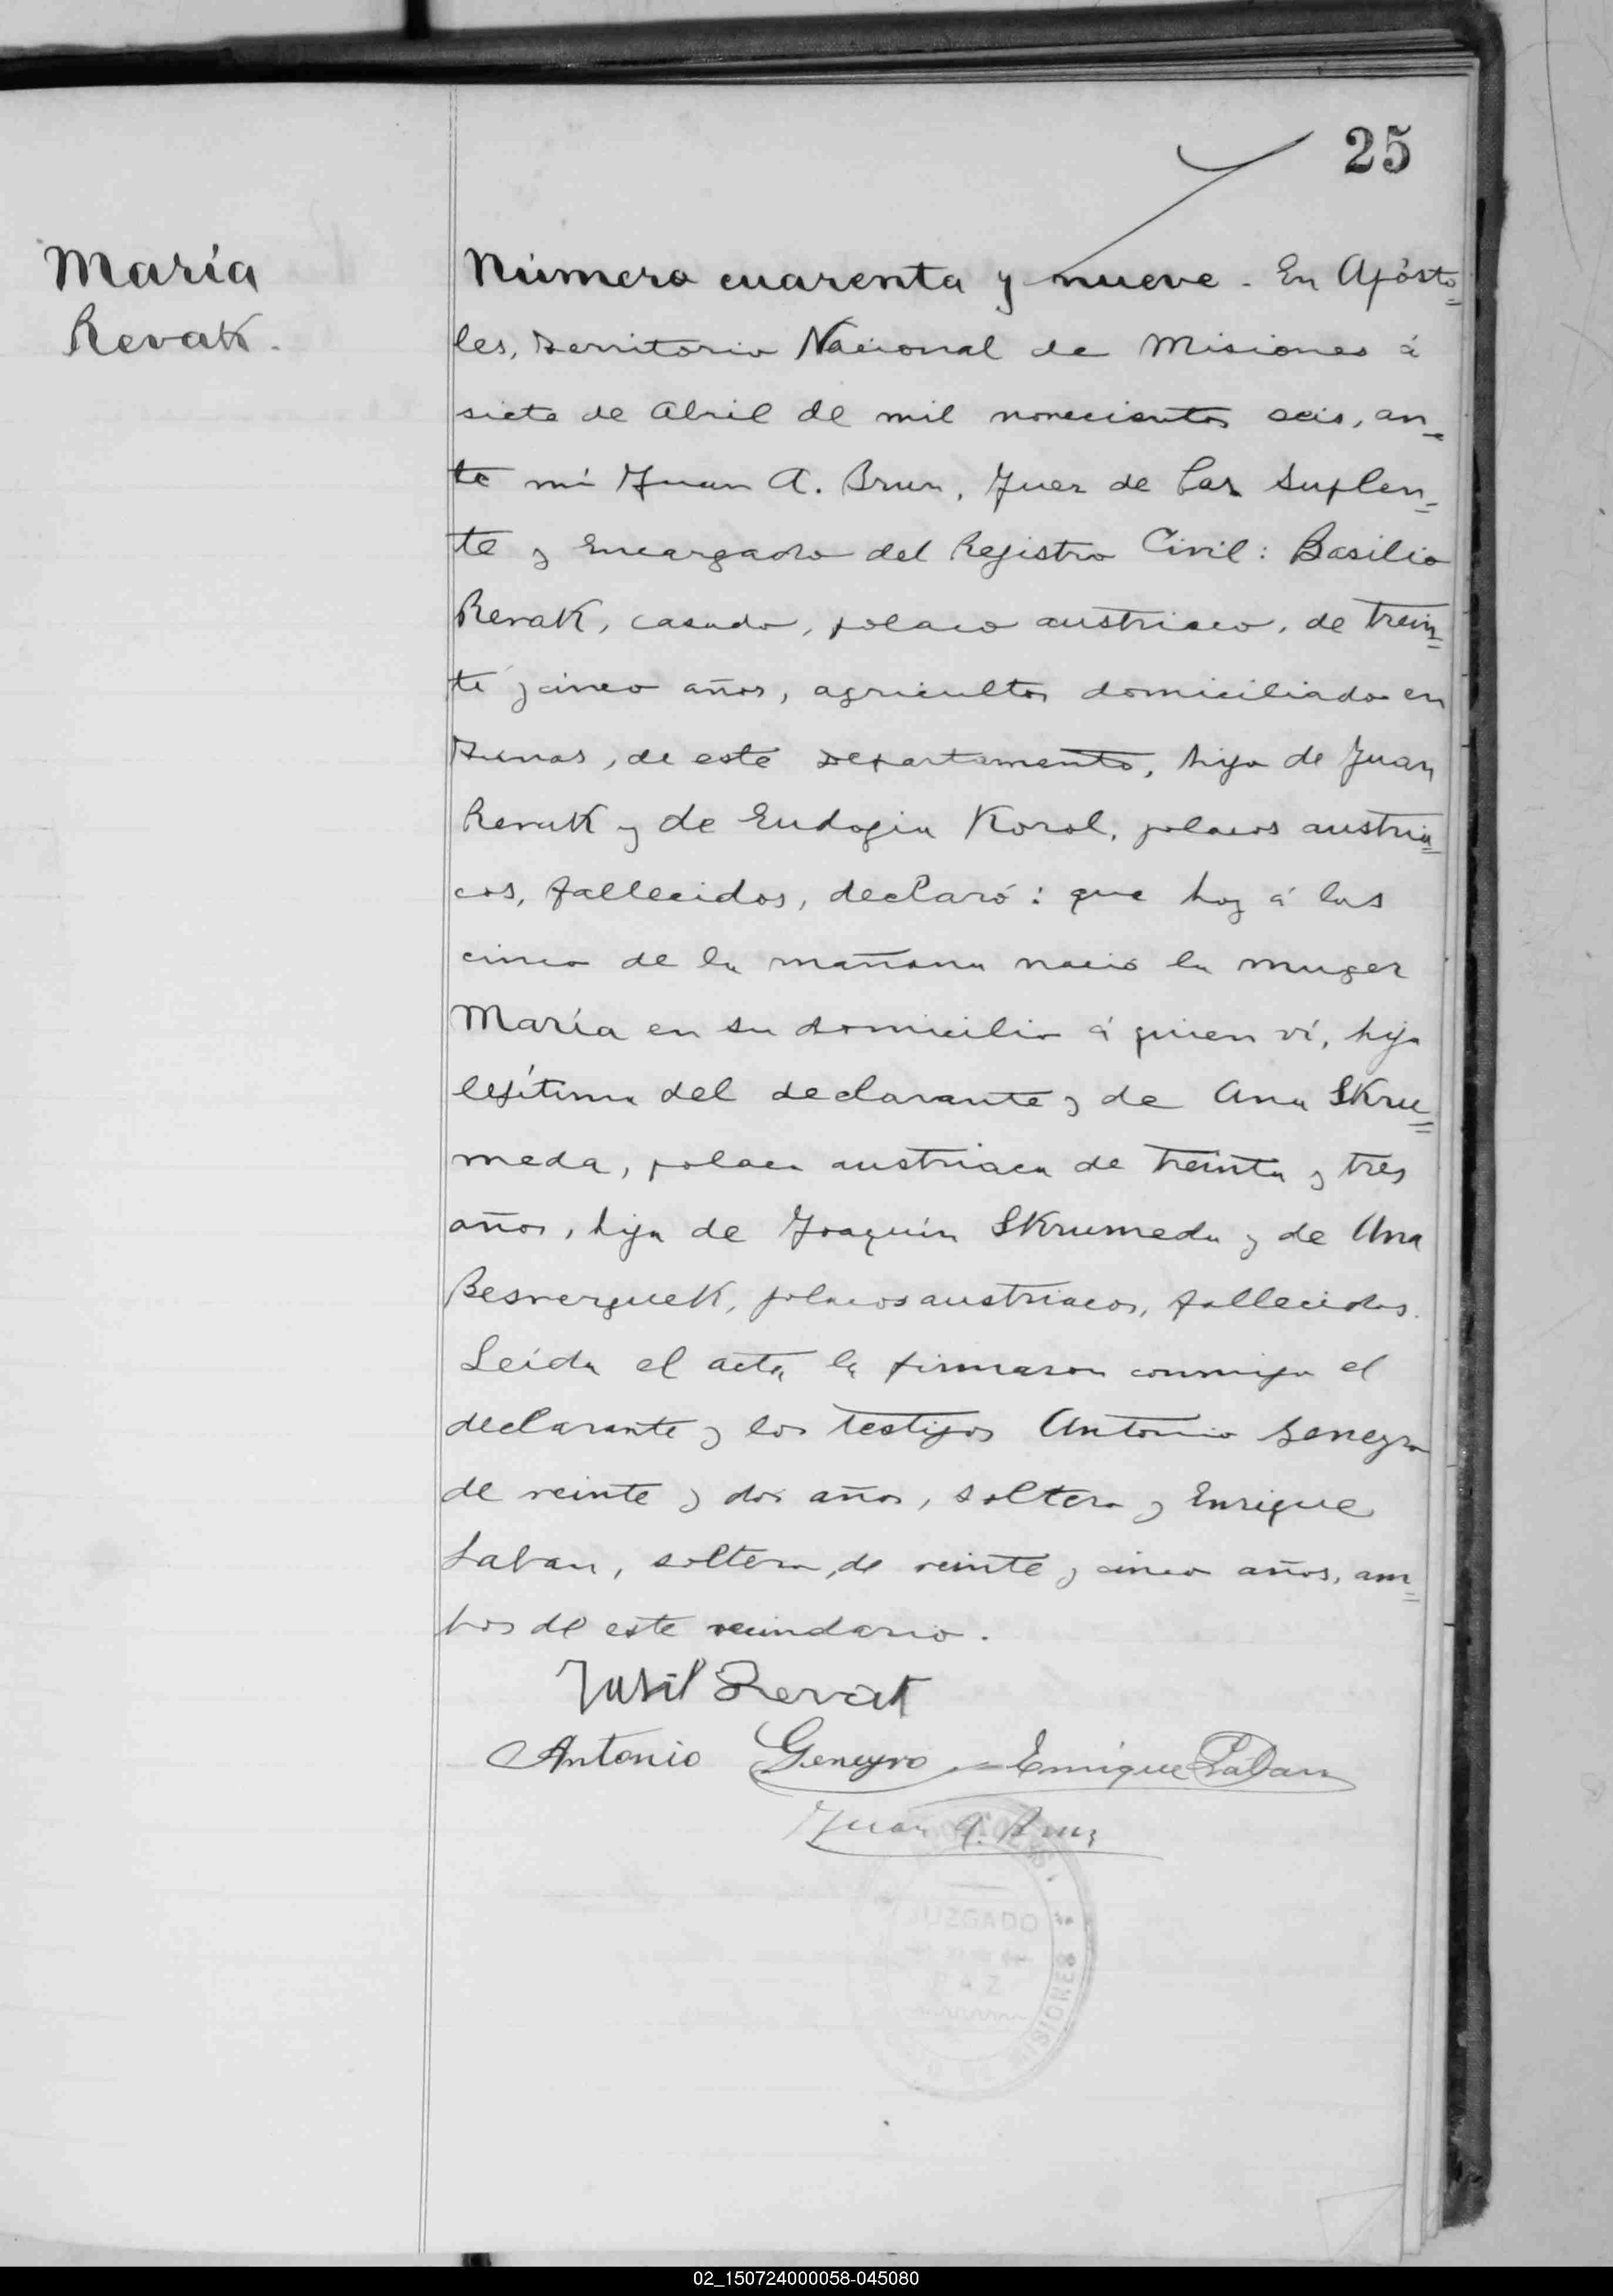 25
María
Revak.
Número cuarenta y nueve. En Apósto=
les, Territorio Nacional de Misiones á
siete de Abril de mil novecientos seis, an=
te mí Juan A. Brun, Juez de Paz Suplen=
te y Encargado del Registro Civil: Basilio
Revak, casado, polaco austriaco, de trein=
ta y cinco años, agricultor domiciliado en
Tunas, de este Departamento, hijo de Juan
Revak y de Eudogia Korol, polacos austria=
cos, fallecidos, declaró: que hoy á las
cinco de la mañana nació la muger
María en su domicilio á quien ví, hija
legítima del declarante y de Ana Skru=
meda, polaca austriaca de treinta y tres
años, hija de Joaquín Skrumeda y de Ana
Besverguek, polacos austriacos, fallecidos.
Leída el acta la firmaron conmigo el
declarante y los testigos Antonio Geneyro
de veinte y dos años, soltero y Enrique
Laban, soltero, de veinte y cinco años, am=
bos de este vecindario.
Wasil Revak
Antonio Geneyro - Enrique Laban
Juan A. Brun
JUZGADO
PAZ
MISIONES
02_150724000058-045080